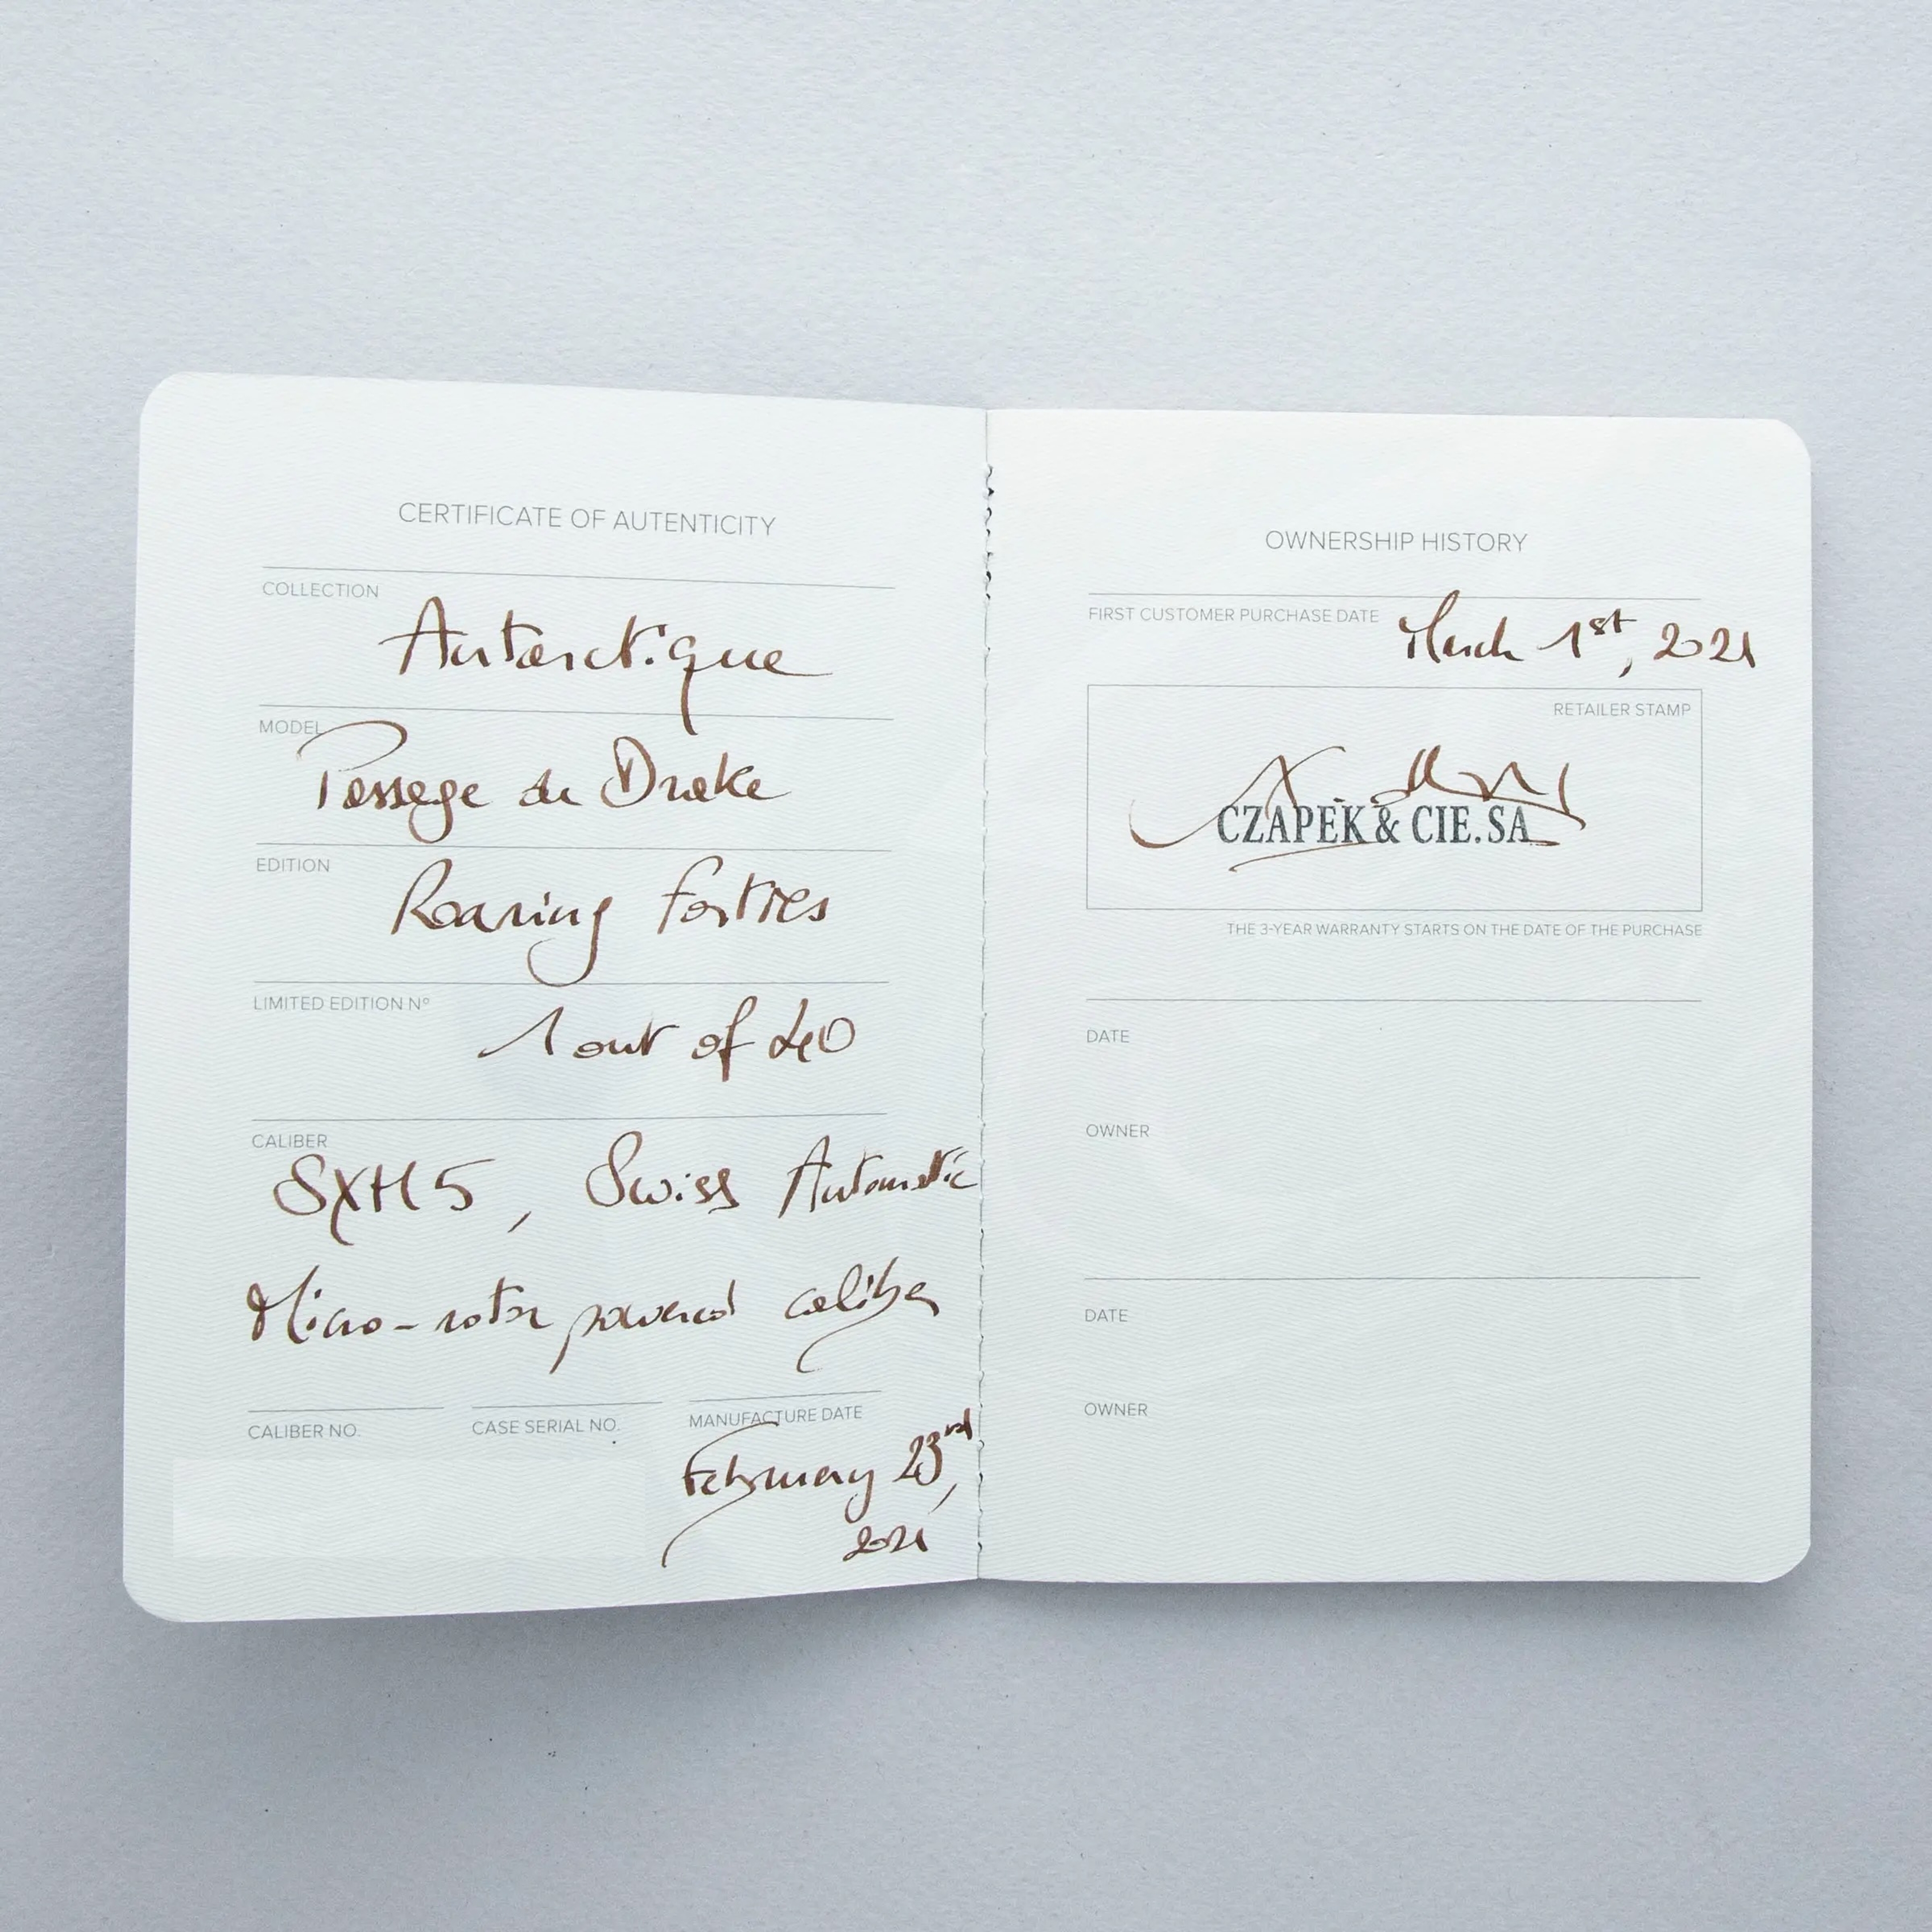 CERTIFICATE OF AUTENTICITY
COLLECTION
Antarctique
MODEL
Passage de Drake
EDITION
Roaring Forties
LIMITED EDITION Nº
1 out of 40
CALIBER
SXH5, Swiss Automatic
Micro-rotor powered caliber
CALIBER NO.
CASE SERIAL NO.
MANUFACTURE DATE
February 23rd,
2021
OWNERSHIP HISTORY
FIRST CUSTOMER PURCHASE DATE March 1st, 2021
RETAILER STAMP
CZAPEK & CIE.SA
THE 3-YEAR WARRANTY STARTS ON THE DATE OF THE PURCHASE
DATE
OWNER
DATE
OWNER